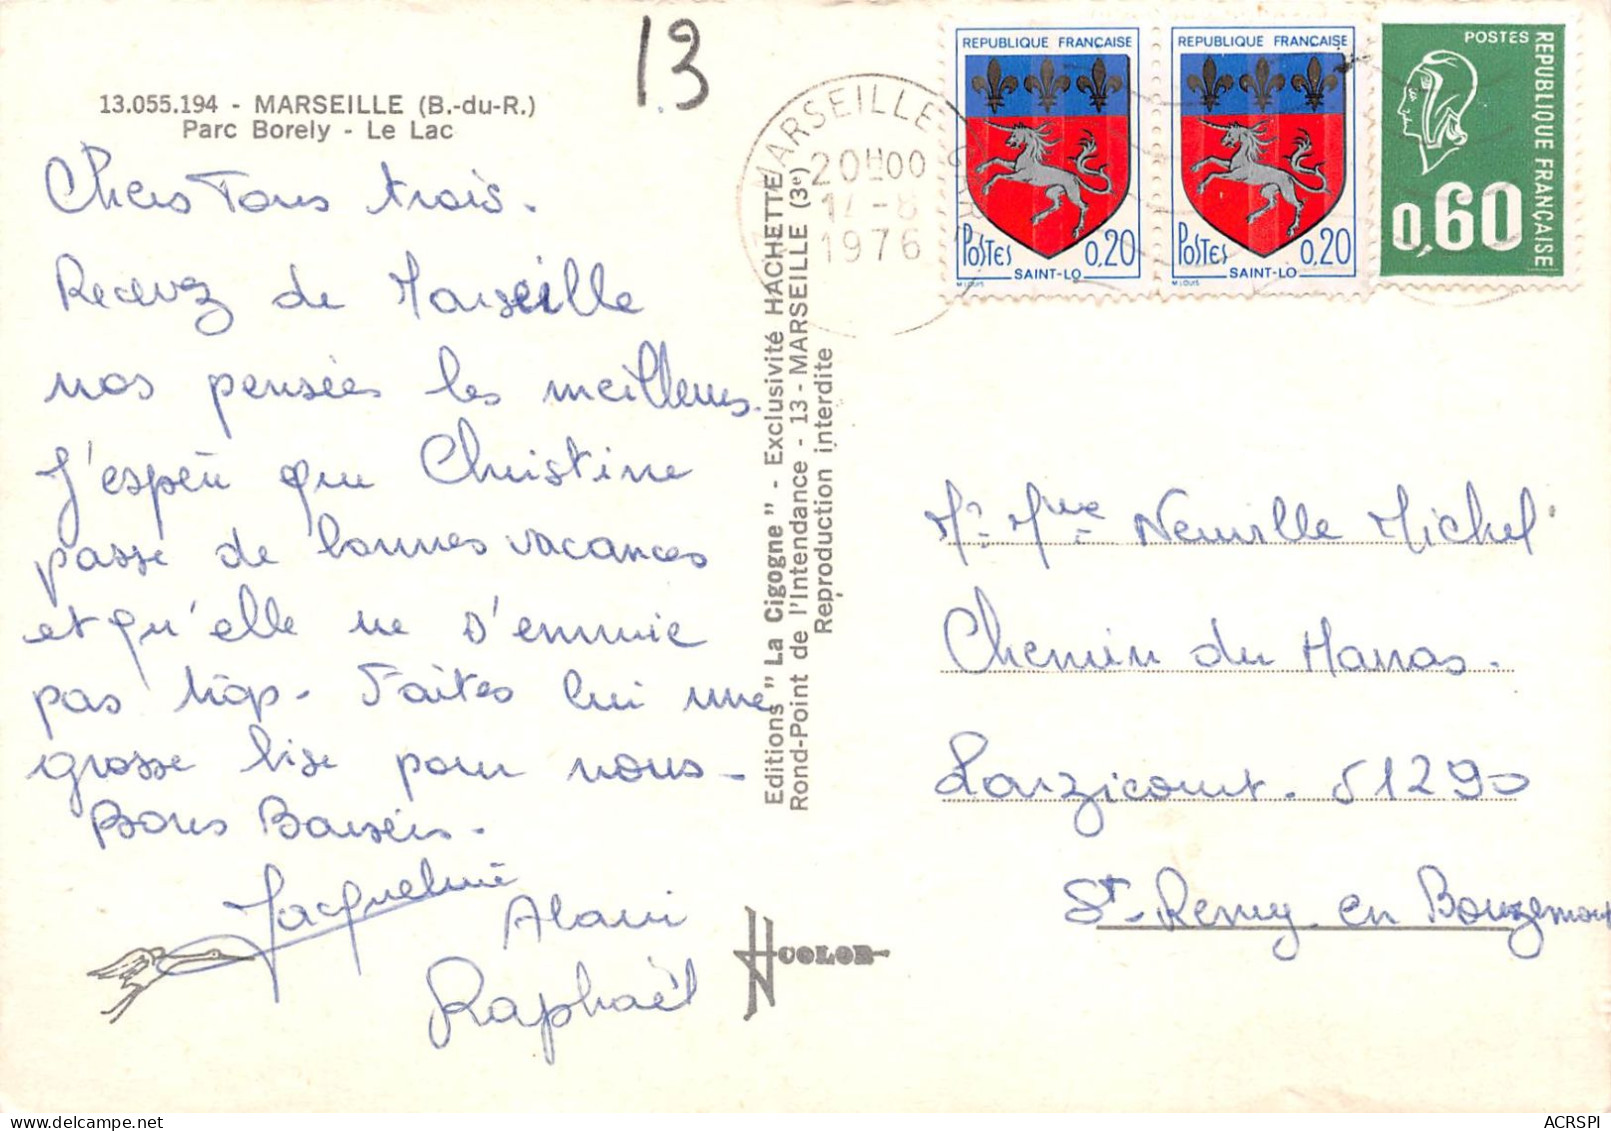 13
13.055.194 - MARSEILLE (B.-du-R.)
Parc Borely - Le Lac
Chers Tous trois.
Recevez de Marseille
nos pensées les meilleures.
J'espère que Christine
passe de bonnes vacances
et qu'elle ne s'ennuie
pas trop - Faites lui une
grosse bise pour nous -
Bons Baisers -
Jacqueline
Alain
Raphaël
Editions " La Cigogne " - Exclusivité HACHETTE
Rond-Point de l'Intendance - 13 - MARSEILLE (3e)
Reproduction interdite
COLOR
MARSEILLE GARE
20H00
17-8
1976
REPUBLIQUE FRANÇAISE
POSTES 0,20
SAINT-LO
M LOUIS
REPUBLIQUE FRANÇAISE
POSTES 0,20
SAINT-LO
M LOUIS
POSTES
REPUBLIQUE FRANÇAISE
0,60
Mr Mme Neuville Michel
Chemin du Manas.
Larzicourt. 51290
St-Remy en Bouzemont
ACRSPI